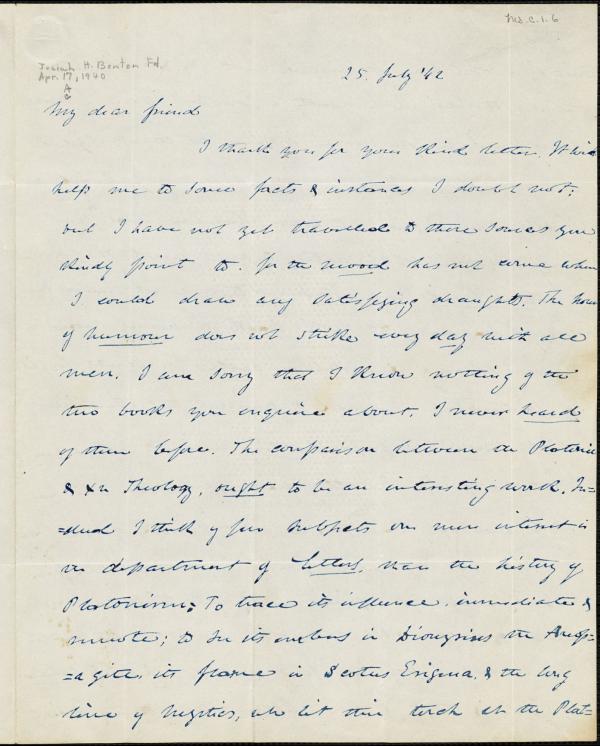 Ms. C. 1. 6
Josiah H. Benton Fd.
Apr. 17, 1940
A
G
25. July '42
My dear friend
I thank you for your kind letter. It will
help me to some facts & instances I doubt not;
but I have not yet travelled to those sources you
kindly point to. for the mood has not come when
I could draw any satisfying draughts. The hour
of humour does not strike every day with all
men. I am sorry that I know nothing of the
two books you enquire about. I never heard
of them before. The comparison between the Platonic
& Xn Theology, ought to be an interesting work. In=
=deed I think of few subjects of more interest in
the department of Letters, than the history of
Platonism; To trace its influence. immediate &
remote; to see its embers in Dionysius the Areop=
=agite, its flame in Scotus Erigena, & the long
line of Mystics, who lit their torch at the Plat=